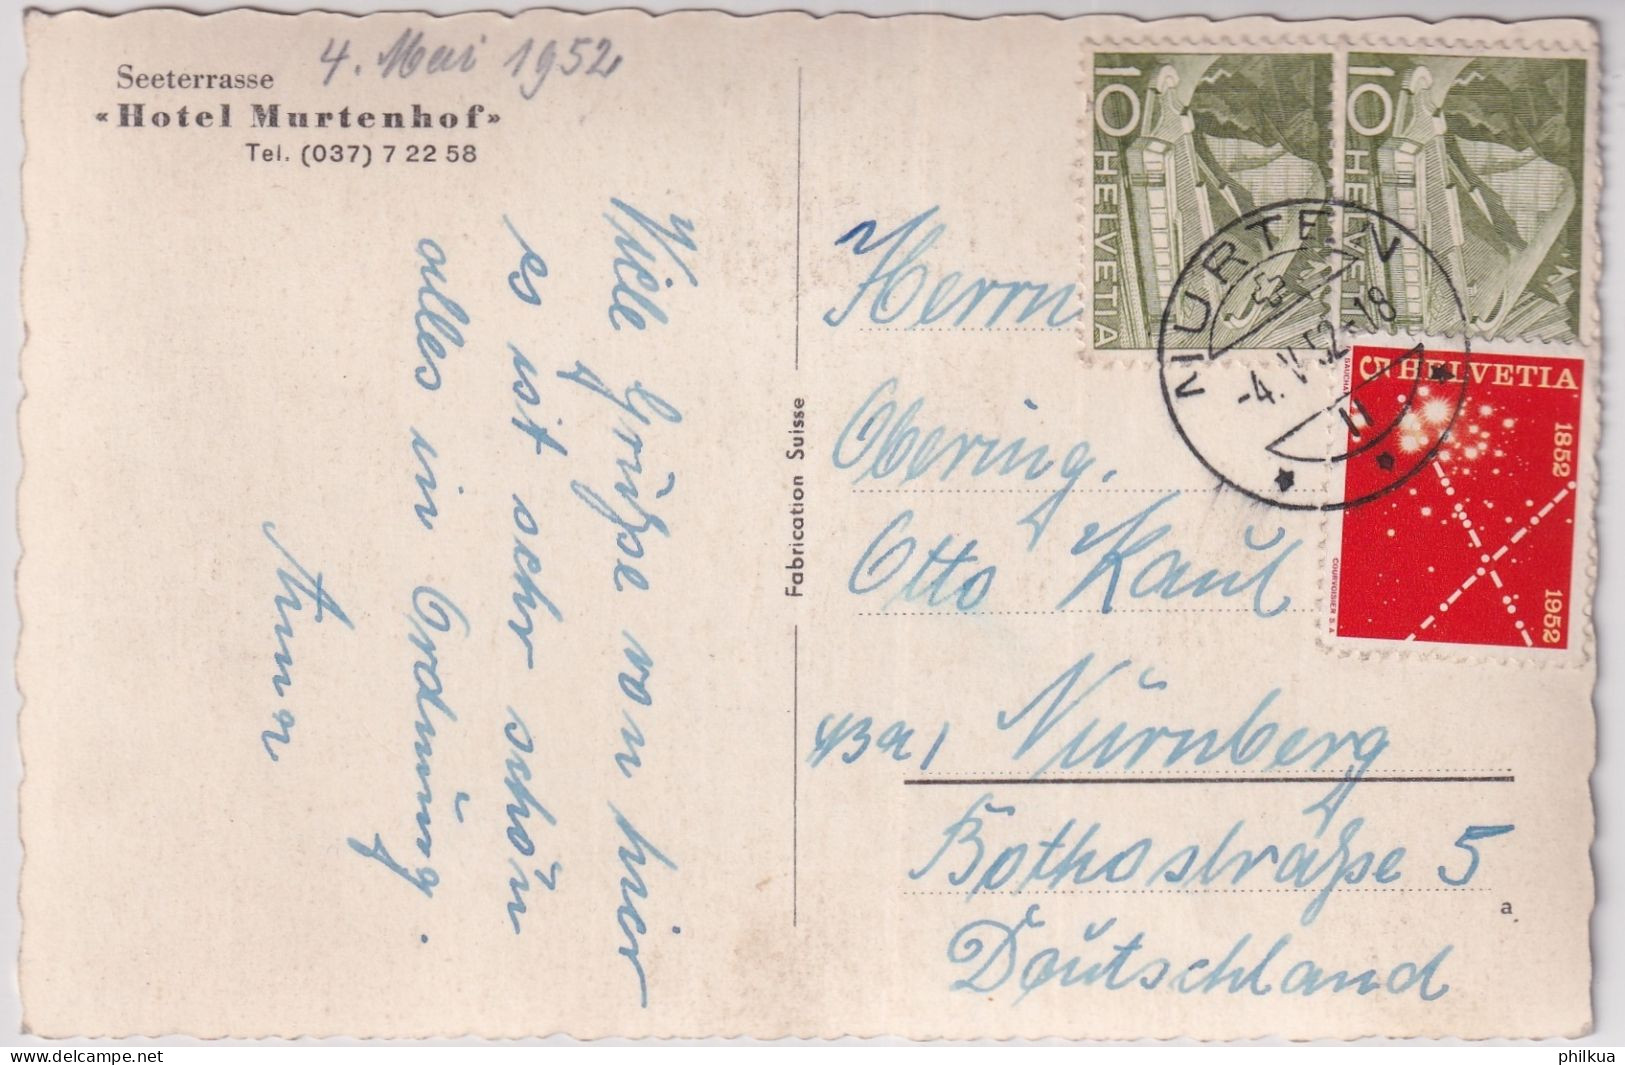 4. Mai 1952
Seeterrasse
«Hotel Murtenhof»
Tel. (037) 7 22 58
Viele Grüße von hier
es ist sehr schön
alles in Ordnung.
Anna
Fabrication Suisse
Herrn
Obering.
Otto Kaul
Nürnberg
Bothostraße 5
Deutschland
a
10 HELVETIA
10 HELVETIA
5 HELVETIA
1852
1952
COURVOISIER S.A.
MURTEN
-4.V.52-18
11
philkua
delcampe.net